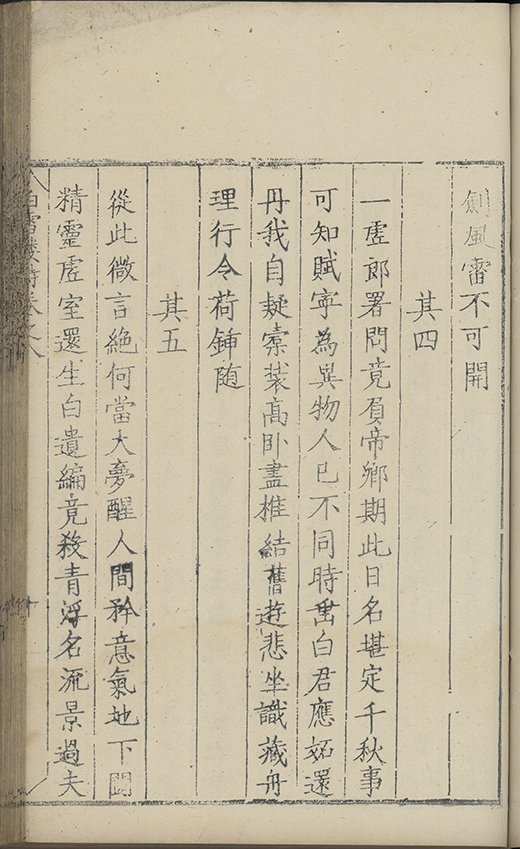 劍風雷不可開
其四
一虛郎署問竟負帝鄉期此日名堪定千秋事
可知賦寧為異物人已不同時尚白君應妬還
丹我自疑橐裝高臥盡椎結舊遊悲坐識藏舟
理行令荷鍤随
其五
從此微言絕何當大夢醒人間矜意氣地下閟
精靈虛室還生白遺編竟殺青浮名流景過夫
白雪樓詩卷之八